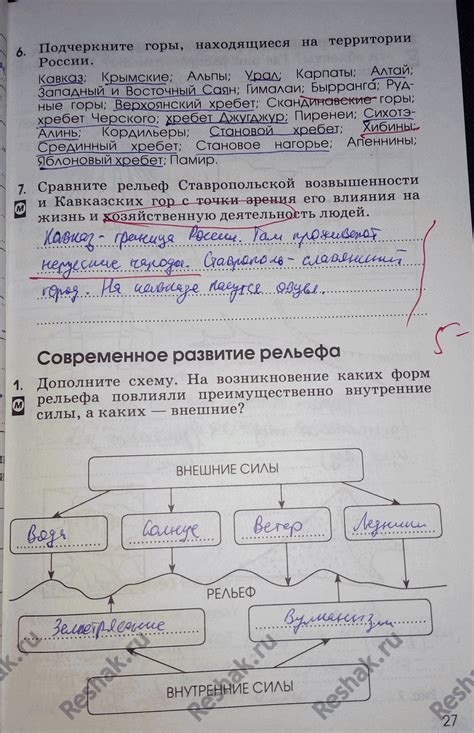 6. Подчеркните горы, находящиеся на территории
России.
Кавказ; Крымские; Альпы; Урал; Карпаты; Алтай;
Западный и Восточный Саян; Гималаи; Бырранга; Руд-
ные горы; Верхоянский хребет; Скандинавские горы;
хребет Черского; хребет Джугджур; Пиренеи; Сихотэ-
Алинь; Кордильеры; Становой хребет; Хибины;
Срединный хребет; Становое нагорье; Апеннины;
Яблоновый хребет; Памир.
7. Сравните рельеф Ставропольской возвышенности
М и Кавказских гор с точки зрения его влияния на
жизнь и хозяйственную деятельность людей.
Кавказ - граница России. Там проживают
нерусские народы. Ставрополь - славянский
город. На кавказе пасутся овцы.
5-
Современное развитие рельефа
1. Дополните схему. На возникновение каких форм
М рельефа повлияли преимущественно внутренние
силы, а каких — внешние?
ВНЕШНИЕ СИЛЫ
Вода Солнце Ветер Ледники
РЕЛЬЕФ
Землетрясение Вулканизм
ВНУТРЕННИЕ СИЛЫ
Reshak.ru Reshak.ru Reshak.ru
27